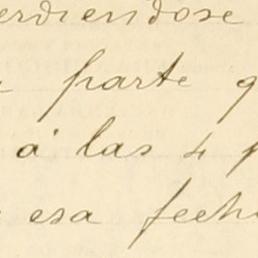 erdiendose
parte q
á las 4 p
esa fech